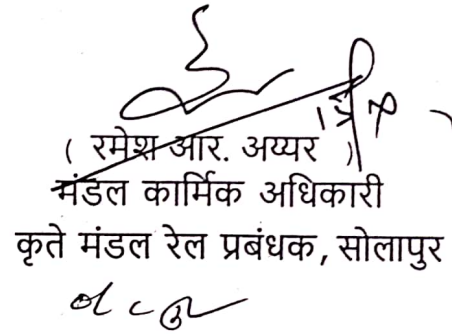 ( रमेश आर. अय्यर )
मंडल कार्मिक अधिकारी
कृते मंडल रेल प्रबंधक, सोलापुर